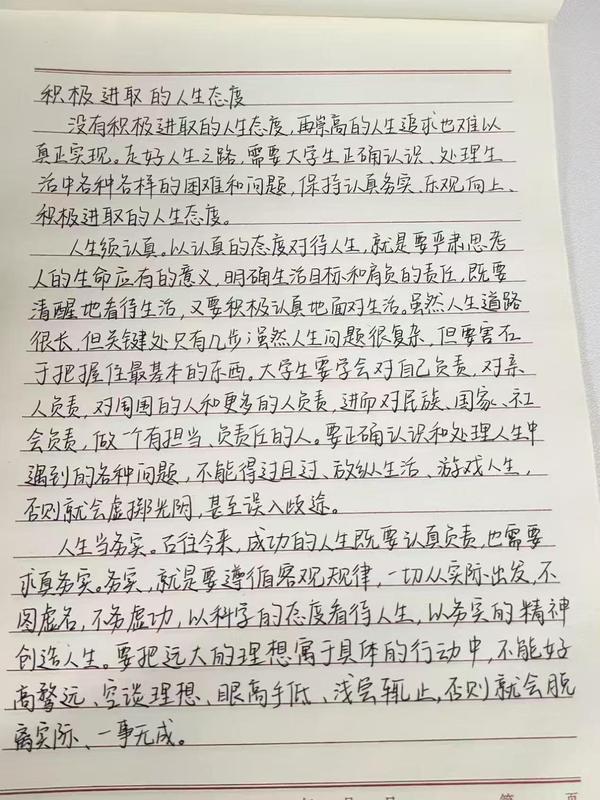 积极进取的人生态度
没有积极进取的人生态度,再崇高的人生追求也难以
真正实现。走好人生之路,需要大学生正确认识、处理生
活中各种各样的困难和问题,保持认真务实、乐观向上、
积极进取的人生态度。
人生须认真。以认真的态度对待人生,就是要严肃思考
人的生命应有的意义,明确生活目标和肩负的责任,既要
清醒地看待生活,又要积极认真地面对生活。虽然人生道路
很长,但关键处只有几步;虽然人生问题很复杂,但要害在
于把握住最基本的东西。大学生要学会对自己负责,对亲
人负责,对周围的人和更多的人负责,进而对民族、国家、社
会负责,做一个有担当、负责任的人。要正确认识和处理人生中
遇到的各种问题,不能得过且过、放纵生活、游戏人生,
否则就会虚掷光阴,甚至误入歧途。
人生当务实。古往今来,成功的人生既要认真负责,也需要
求真务实。务实,就是要遵循客观规律,一切从实际出发,不
图虚名,不务虚功,以科学的态度看待人生,以务实的精神
创造人生。要把远大的理想寓于具体的行动中,不能好
高骛远、空谈理想、眼高手低、浅尝辄止,否则就会脱
离实际、一事无成。
年 月 日 第 页